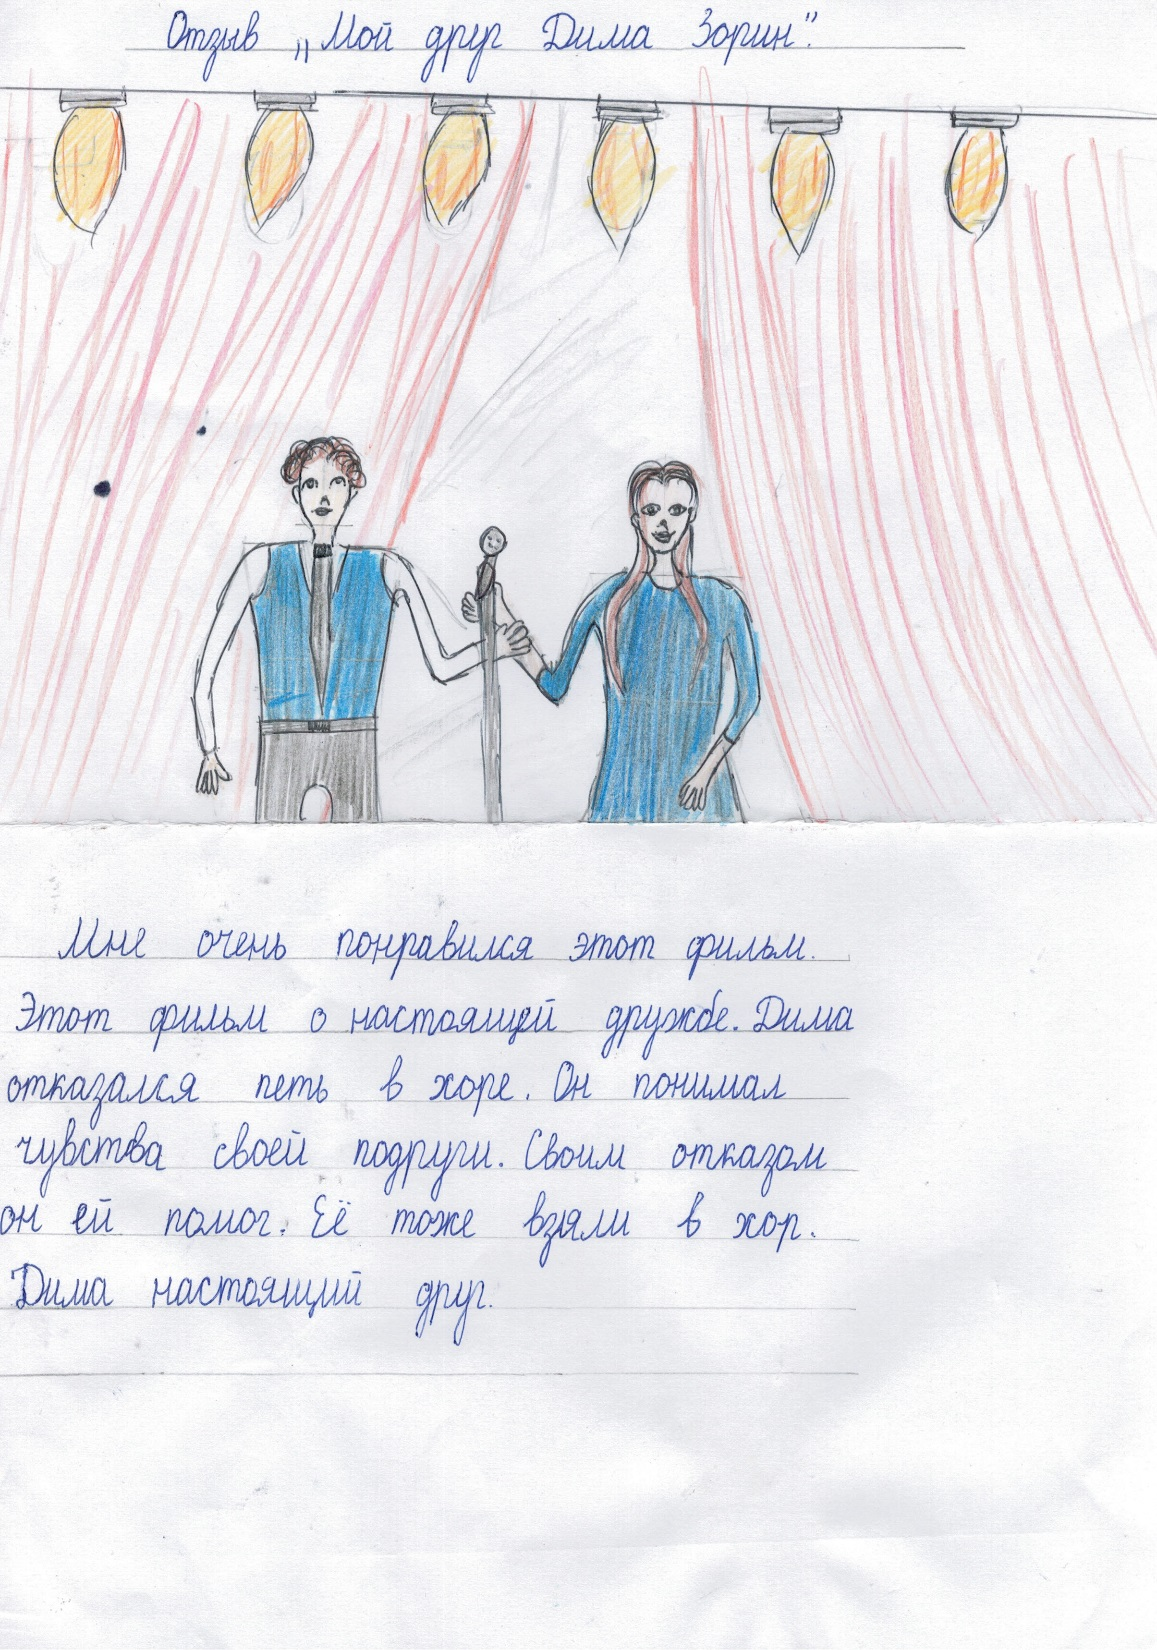 Отзыв „Мой друг Дима Зорин".
Мне очень понравился этот фильм.
Этот фильм о настоящей дружбе. Дима
отказался петь в хоре. Он понимал
чувства своей подруги. Своим отказом
он ей помог. Её тоже взяли в хор.
Дима настоящий друг.